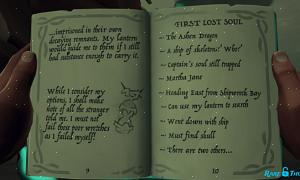 imprisoned in their own
decaying remnants. My lantern
would guide me to them if I still
had substance enough to carry it.
While I consider my
options, I shall make
note of all the stranger
told me. I must not
fail these poor wretches
as I failed myself!
9
FIRST LOST SOUL
~ The Ashen Dragon
~ A ship of skeletons! Who?
~ Captain's soul still trapped
~ Martha Jane
~ Heading East from Shipwreck Bay
~ Can use my lantern to search
~ Went down with ship
~ Must find skull
~ There are two others...
10
RARE